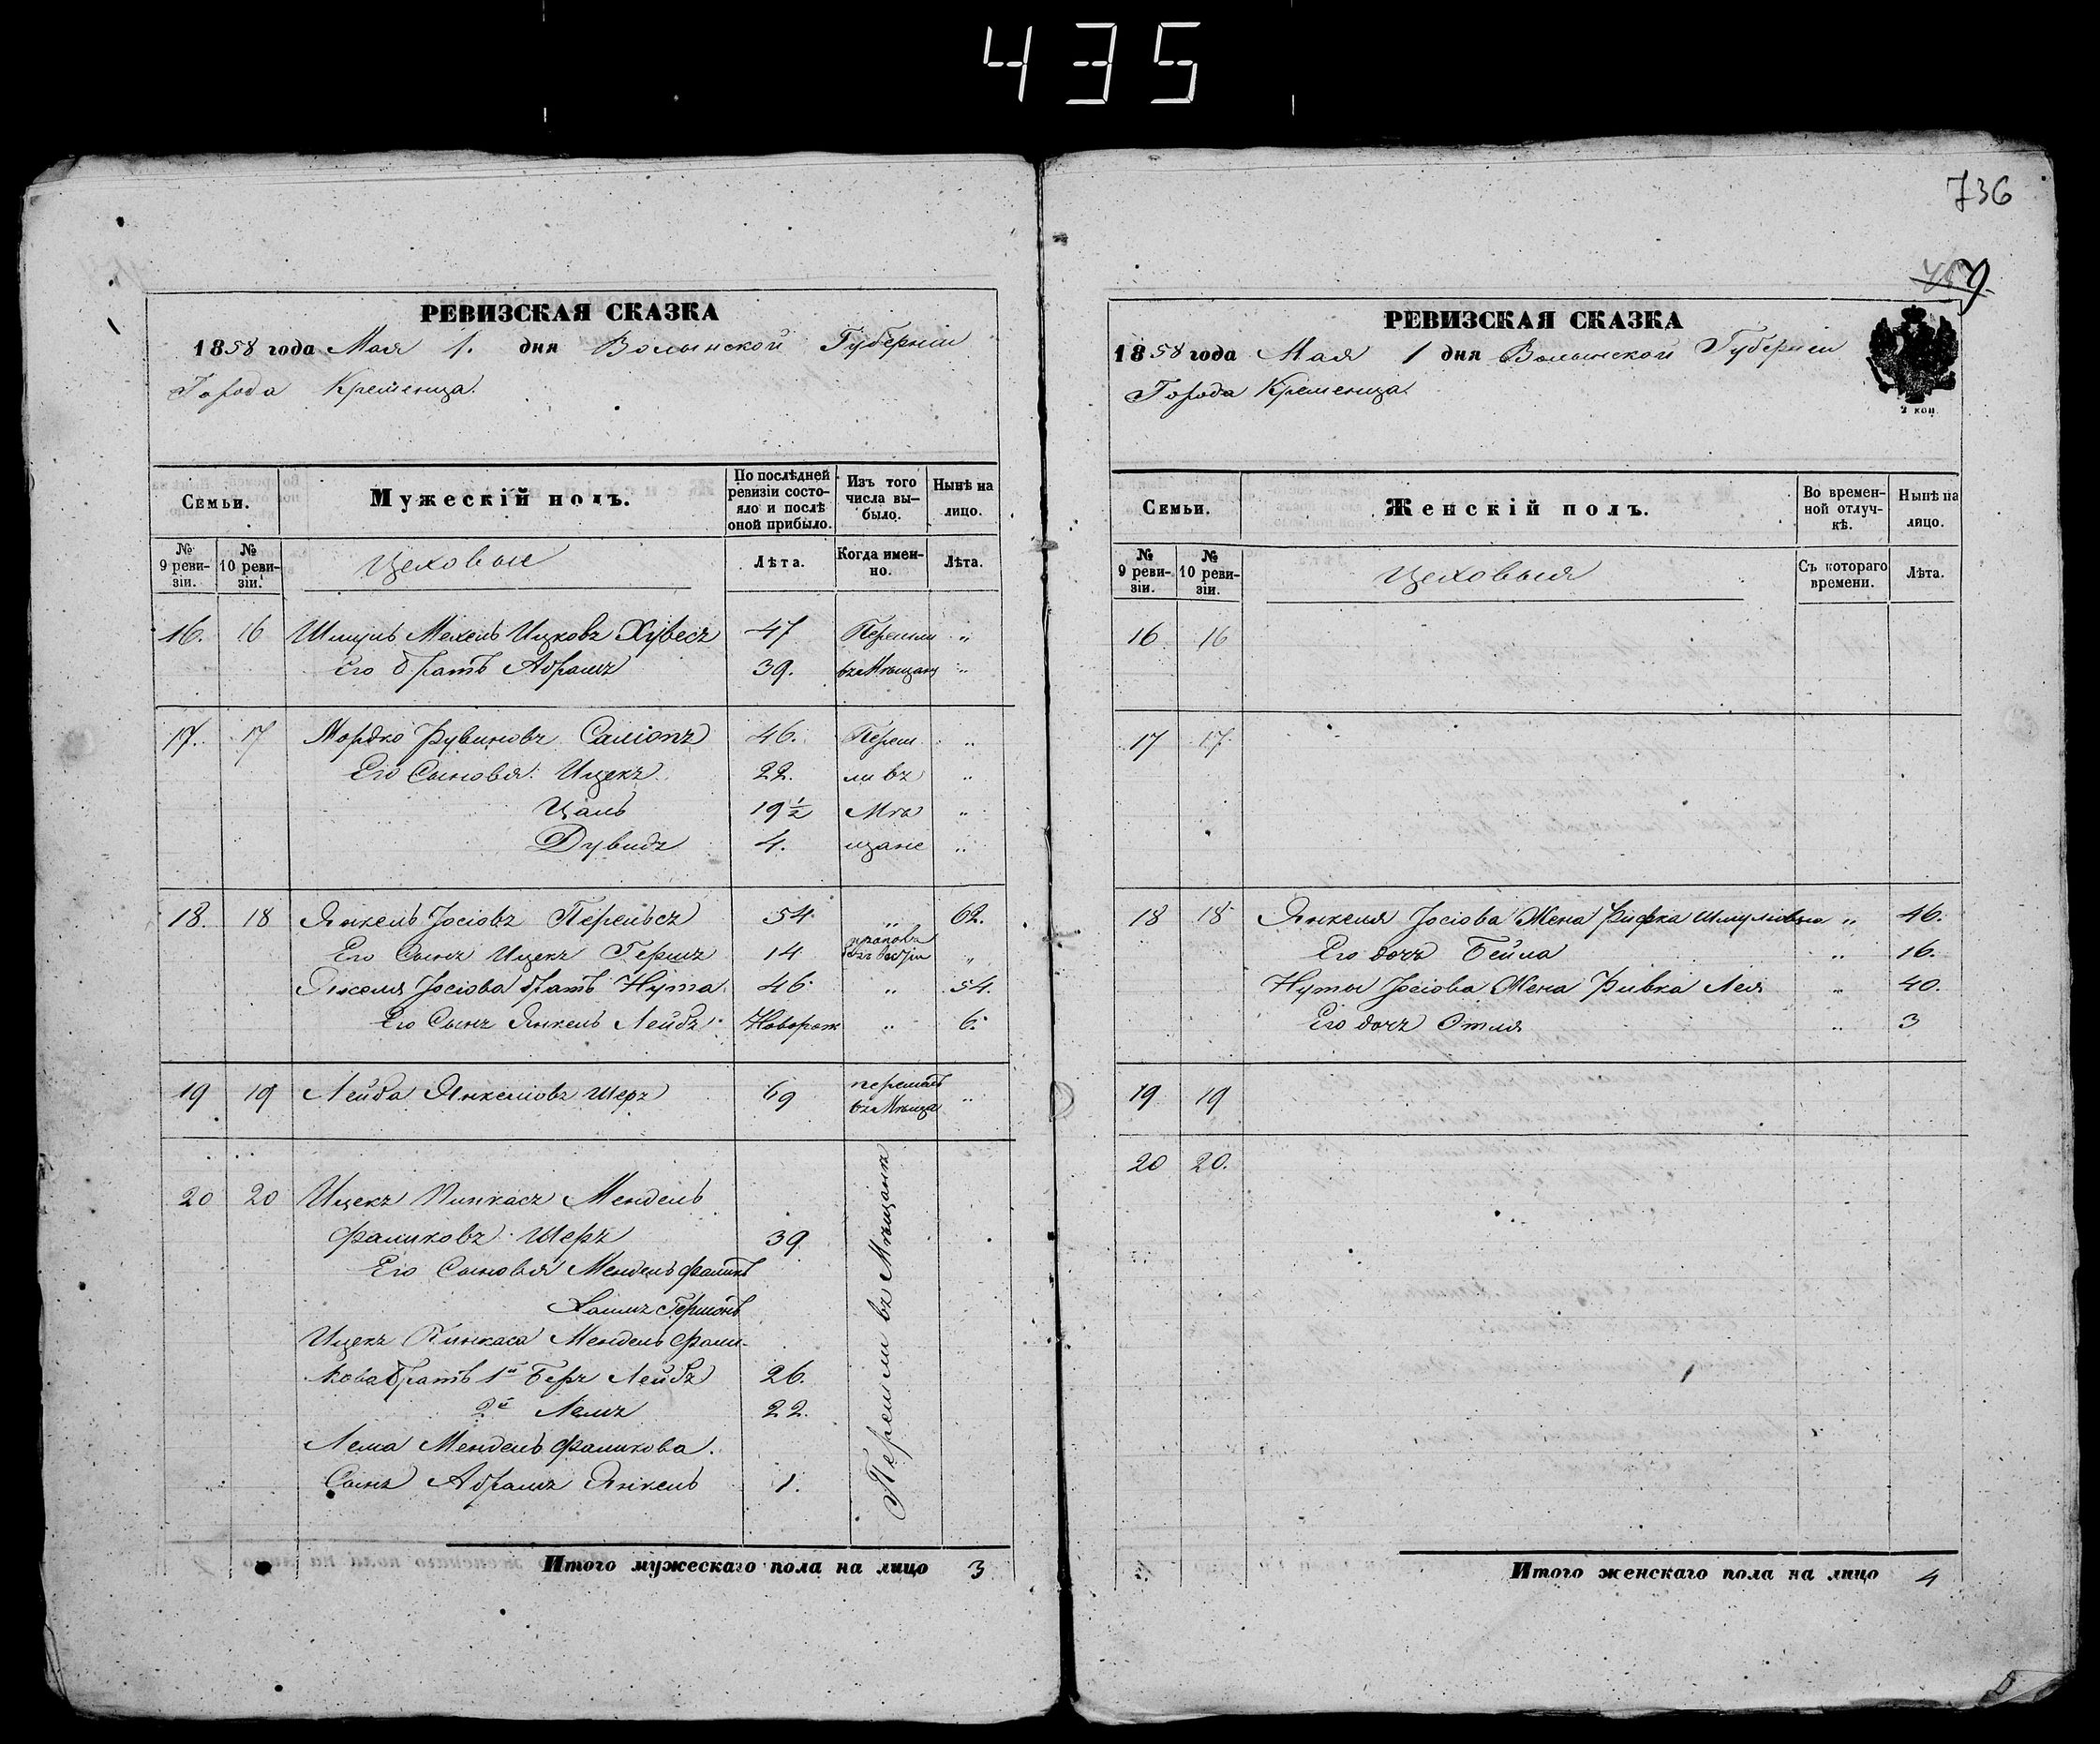 435
736
РЕВИЗСКАЯ СКАЗКА
1858 года Мая 1. дня Волынской Губерніи
Города Кременца.
Семьи.
Мужескій полъ.
По послѣдней ревизіи состояло и послѣ оной прибыло.
Изъ того числа выбыло.
Нынѣ на лицо.
№ 9 ревизіи.
№ 10 ревизіи.
Цеховые
Лѣта.
Когда именно.
Лѣта.
16. 16 Шмуль Мехель Ицковъ Хувесъ 47 Перешли „
Его братъ Абрамъ 39. въ Мѣщане „
17. 17 Мордко Рувиновъ Саліопъ 46. Переш „
Его Сыновья: Ицекъ 22. ли въ „
Цаль 19 1/2 Мѣ „
Дувидъ 4. щане „
18. 18 Янкель Іосіовъ Перельсъ 54 „ 62.
Его Сынъ Ицекъ Гершъ 14 „
Янкеля Іосіова братъ Нута 46 „ 54.
Его Сынъ Янкель Лейбъ Новорож „ 6.
19 19 Лейба Янкеліовъ Шеръ 69 перешолъ въ Мѣща „
20 20 Ицекъ Пинкасъ Мендель
Фаликовъ Шеръ 39
Его Сыновья Мендель Фаликъ
Хаимъ Гершонъ
Ицекъ Пинкаса Мендель Фали-
кова братъ 1й Беръ Лейбъ 26.
2й Лемъ 22.
Лема Мендель Фаликова
Сынъ Абрамъ Янкель 1.
Перешли въ Мѣщане
Итого мужескаго пола на лицо 3
РЕВИЗСКАЯ СКАЗКА
1858 года Мая 1 дня Волынской Губерніи
Города Кременца.
2 коп
Семьи.
Женскій полъ.
Во временной отлучкѣ.
Нынѣ на лицо.
№ 9 ревизіи.
№ 10 ревизіи.
Цеховыя
Съ котораго времени.
Лѣта.
16 16
17 17
18 18 Янкеля Іосіова Жена Рифка Шмуліовна „ 46.
Его дочь Бейла „ 16.
Нуты Іосіова Жена Ривка Лея „ 40.
Его дочь Отля „ 3
19 19
20 20.
Итого женскаго пола на лицо 4